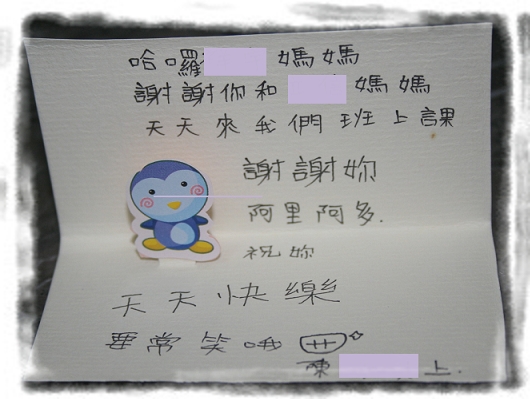 哈囉 媽媽
謝謝你和 媽媽
天天來我們班上課
謝謝妳
阿里阿多.
祝妳
天天快樂
要常笑哦
陳 上.